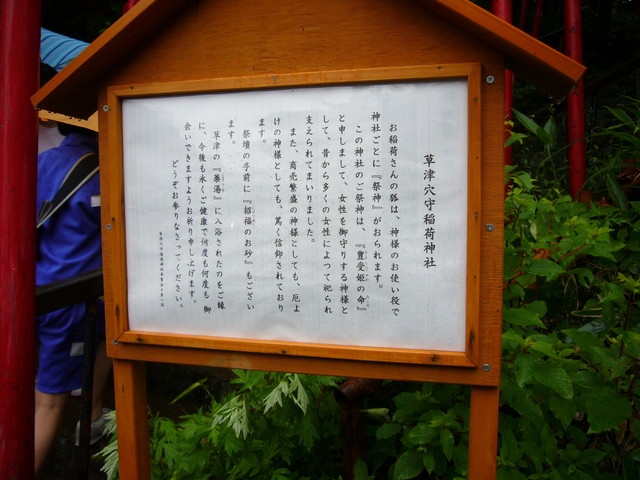 草津穴守稲荷神社
お稲荷さんの狐は、神様のお使い役で
神社ごとに『祭神』がおられます。
この神社のご祭神は、『豊受姫の命』
と申しまして、女性を御守りする神様と
して、昔から多くの女性によって祀られ
支えられてまいりました。
また、商売繁盛の神様としても、厄よ
けの神様としても、篤く信仰されており
ます。
祭壇の手前に『招福のお砂』もござい
ます。
草津の『薬湯』に入浴されたのをご縁
に、今後も永くご健康で何度も何度も御
会いできますようお祈り申し上げます。
どうぞお参りなさってください。